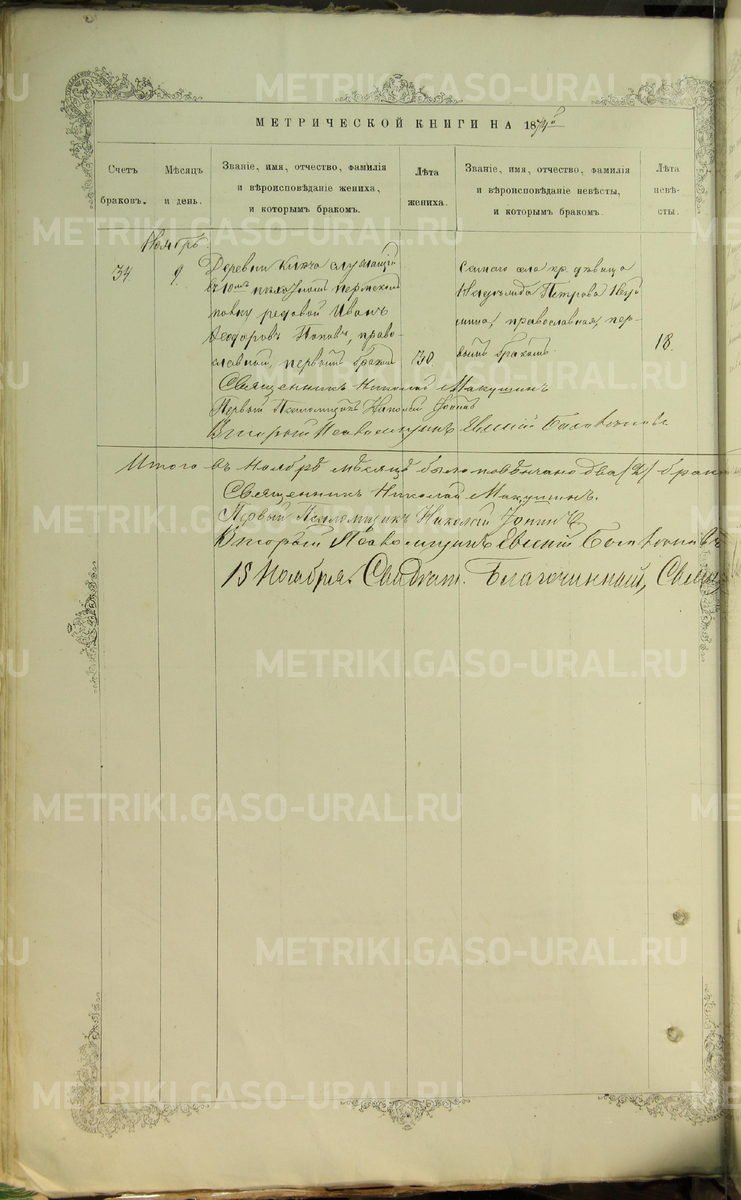 МЕТРИЧЕСКОЙ КНИГИ НА 1874й
Счетъ браковъ.
Мѣсяцъ и день.
Званіе, имя, отчество, фамилія
и вѣроисповѣданіе жениха,
и которымъ бракомъ.
Лѣта жениха.
Званіе, имя, отчество, фамилія
и вѣроисповѣданіе невѣсты,
и которымъ бракомъ.
Лѣта невѣ-
сты.
Ноябрь.
34.
9.
Деревни Ключа служащій
въ 10мъ пѣхотномъ Пермскомъ
полку рядовой Иванъ
Ѳеодоровъ Поповъ, право-
славный, первымъ бракомъ
30.
Самаго села кр. дѣвица
Надежида Петрова
православная, пер-
вымъ бракомъ.
18.
Священникъ Николай Макушинъ
Первый Псаломщикъ Николай
Вторый Псаломщикъ Евгеній
Итого въ Ноябрѣ мѣсяцѣ было повѣнчано два (2) брака
Священникъ Николай Макушинъ.
Первый Псаломщикъ Николай
Вторый Псаломщикъ Евгеній
15 Ноября. Свидѣт. Благочинный, Свящ
METRIKI.GASO-URAL.RU